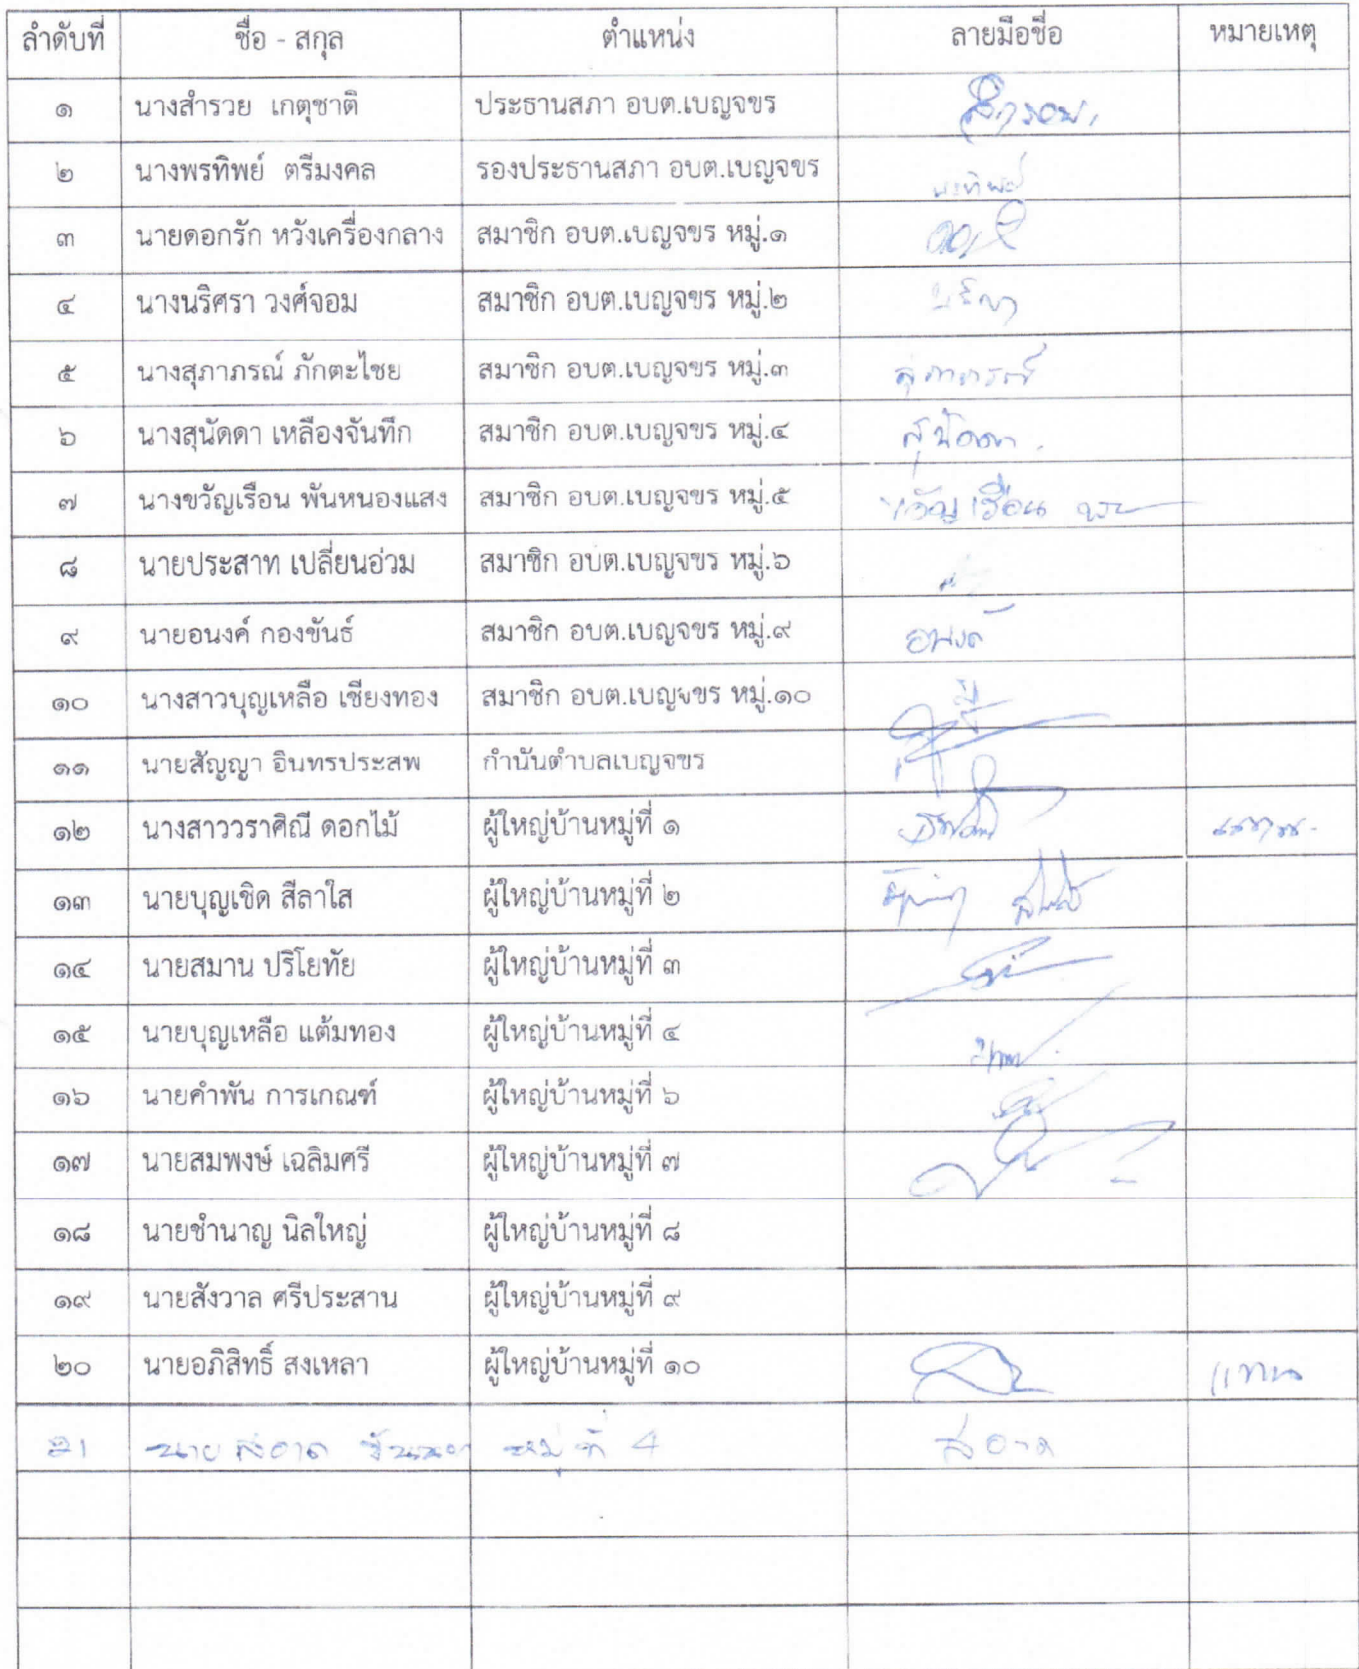 ลำดับที่ ชื่อ - สกุล ตำแหน่ง ลายมือชื่อ หมายเหตุ
๑ นางสำรวย เกตุชาติ ประธานสภา อบต.เบญจขร สำรวย
๒ นางพรทิพย์ ตรีมงคล รองประธานสภา อบต.เบญจขร พรทิพย์
๓ นายดอกรัก หวังเครื่องกลาง สมาชิก อบต.เบญจขร หมู่.๑
๔ นางนริศรา วงศ์จอม สมาชิก อบต.เบญจขร หมู่.๒
๕ นางสุภาภรณ์ ภักตะไชย สมาชิก อบต.เบญจขร หมู่.๓ สุภาภรณ์
๖ นางสุนัดดา เหลืองจันทึก สมาชิก อบต.เบญจขร หมู่.๔ สุนัดดา
๗ นางขวัญเรือน พันหนองแสง สมาชิก อบต.เบญจขร หมู่.๕ ขวัญเรือน
๘ นายประสาท เปลี่ยนอ่วม สมาชิก อบต.เบญจขร หมู่.๖
๙ นายอนงค์ กองขันธ์ สมาชิก อบต.เบญจขร หมู่.๙ อนงค์
๑๐ นางสาวบุญเหลือ เชียงทอง สมาชิก อบต.เบญจขร หมู่.๑๐
๑๑ นายสัญญา อินทรประสพ กำนันตำบลเบญจขร
๑๒ นางสาววราศิณี ดอกไม้ ผู้ใหญ่บ้านหมู่ที่ ๑
๑๓ นายบุญเชิด สีลาใส ผู้ใหญ่บ้านหมู่ที่ ๒
๑๔ นายสมาน ปริโยทัย ผู้ใหญ่บ้านหมู่ที่ ๓
๑๕ นายบุญเหลือ แต้มทอง ผู้ใหญ่บ้านหมู่ที่ ๔
๑๖ นายคำพัน การเกณฑ์ ผู้ใหญ่บ้านหมู่ที่ ๖
๑๗ นายสมพงษ์ เฉลิมศรี ผู้ใหญ่บ้านหมู่ที่ ๗
๑๘ นายชำนาญ นิลใหญ่ ผู้ใหญ่บ้านหมู่ที่ ๘
๑๙ นายสังวาล ศรีประสาน ผู้ใหญ่บ้านหมู่ที่ ๙
๒๐ นายอภิสิทธิ์ สงเหลา ผู้ใหญ่บ้านหมู่ที่ ๑๐ แทน
21 นาย สอาด หมู่ ที่ 4 สอาด